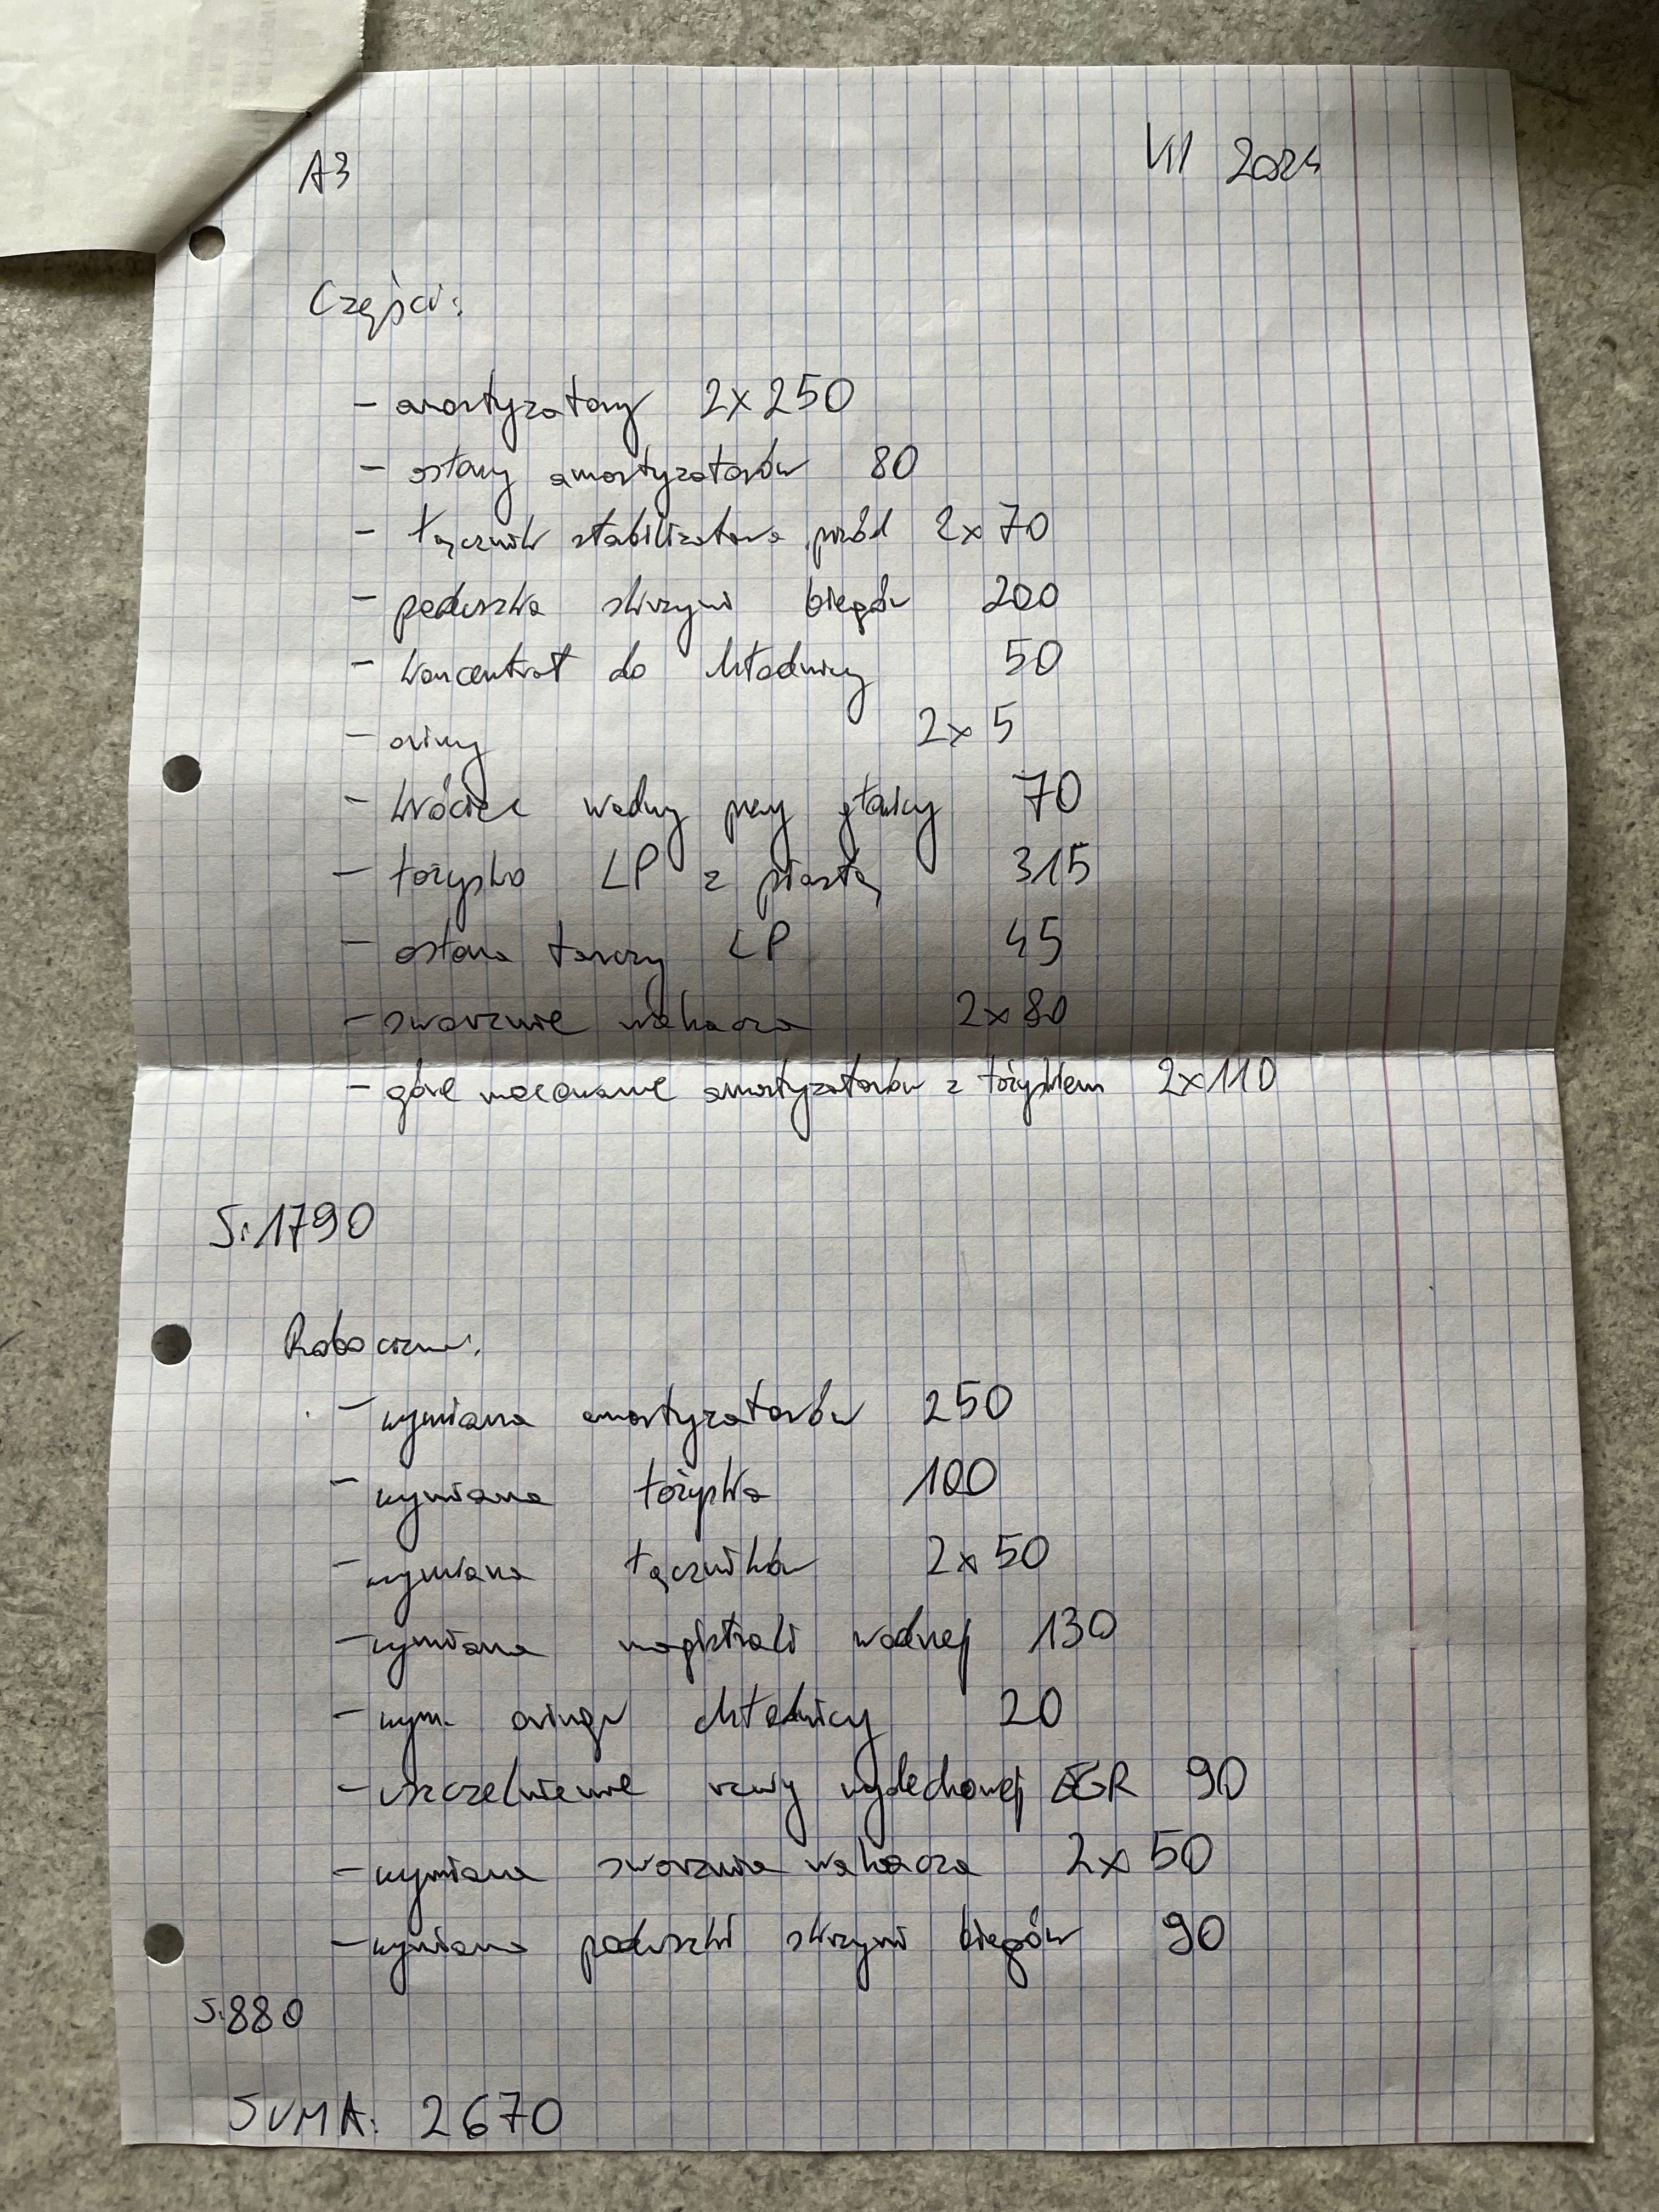 A3 VII 2024
Części:
- amortyzatory 2x250
- osłony amortyzatorów 80
- łącznik stabilizatora przód 2x70
- poduszka skrzyni biegów 200
- koncentrat do chłodnicy 50
- oringi 2x5
- króciec wodny przy głowicy 70
- łożysko LP z piastą 315
- osłona tarczy LP 45
- sworznie wahacza 2x80
- górne mocowanie amortyzatorów z łożyskiem 2x110
S:1790
Robocizna:
- wymiana amortyzatorów 250
- wymiana łożyska 100
- wymiana łączników 2x50
- wymiana magistrali wodnej 130
- wym. oringu chłodnicy 20
- uszczelnienie rury wydechowej EGR 90
- wymiana sworznia wahacza 2x50
- wymiana poduszki skrzyni biegów 90
S:880
SUMA: 2670